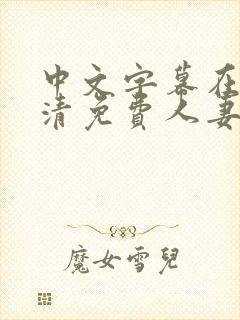 中文字幕在
清免費人妻
魔女雪兒